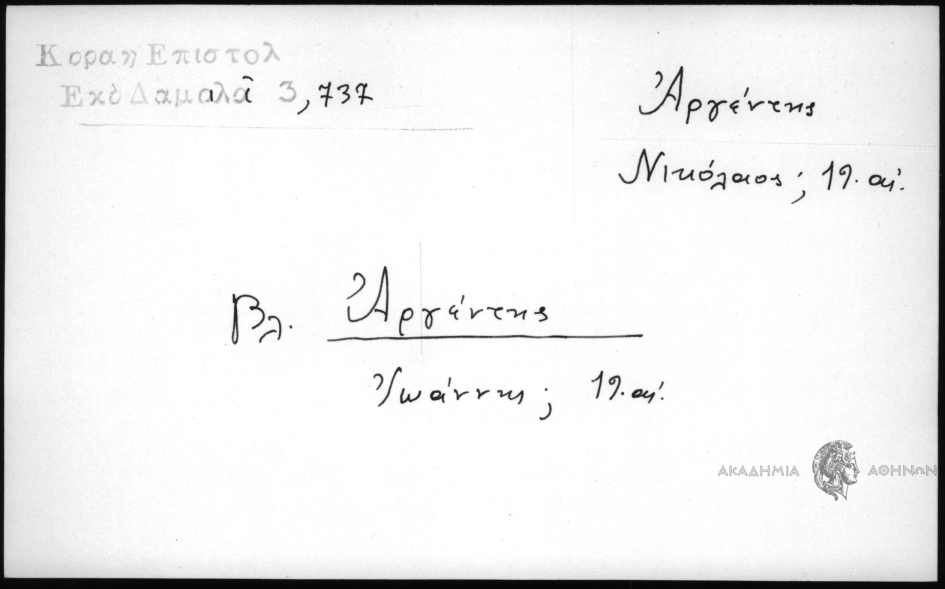 Κοραη Επιστολ
Εκδ Δαμαλᾶ 3, 737
Ἀργέντης
Νικόλαος; 19. αἰ.
Βλ. Ἀργέντης
Ἰωάννης; 19. αἰ.
ΑΚΑΔΗΜΙΑ ΑΘΗΝΩΝ